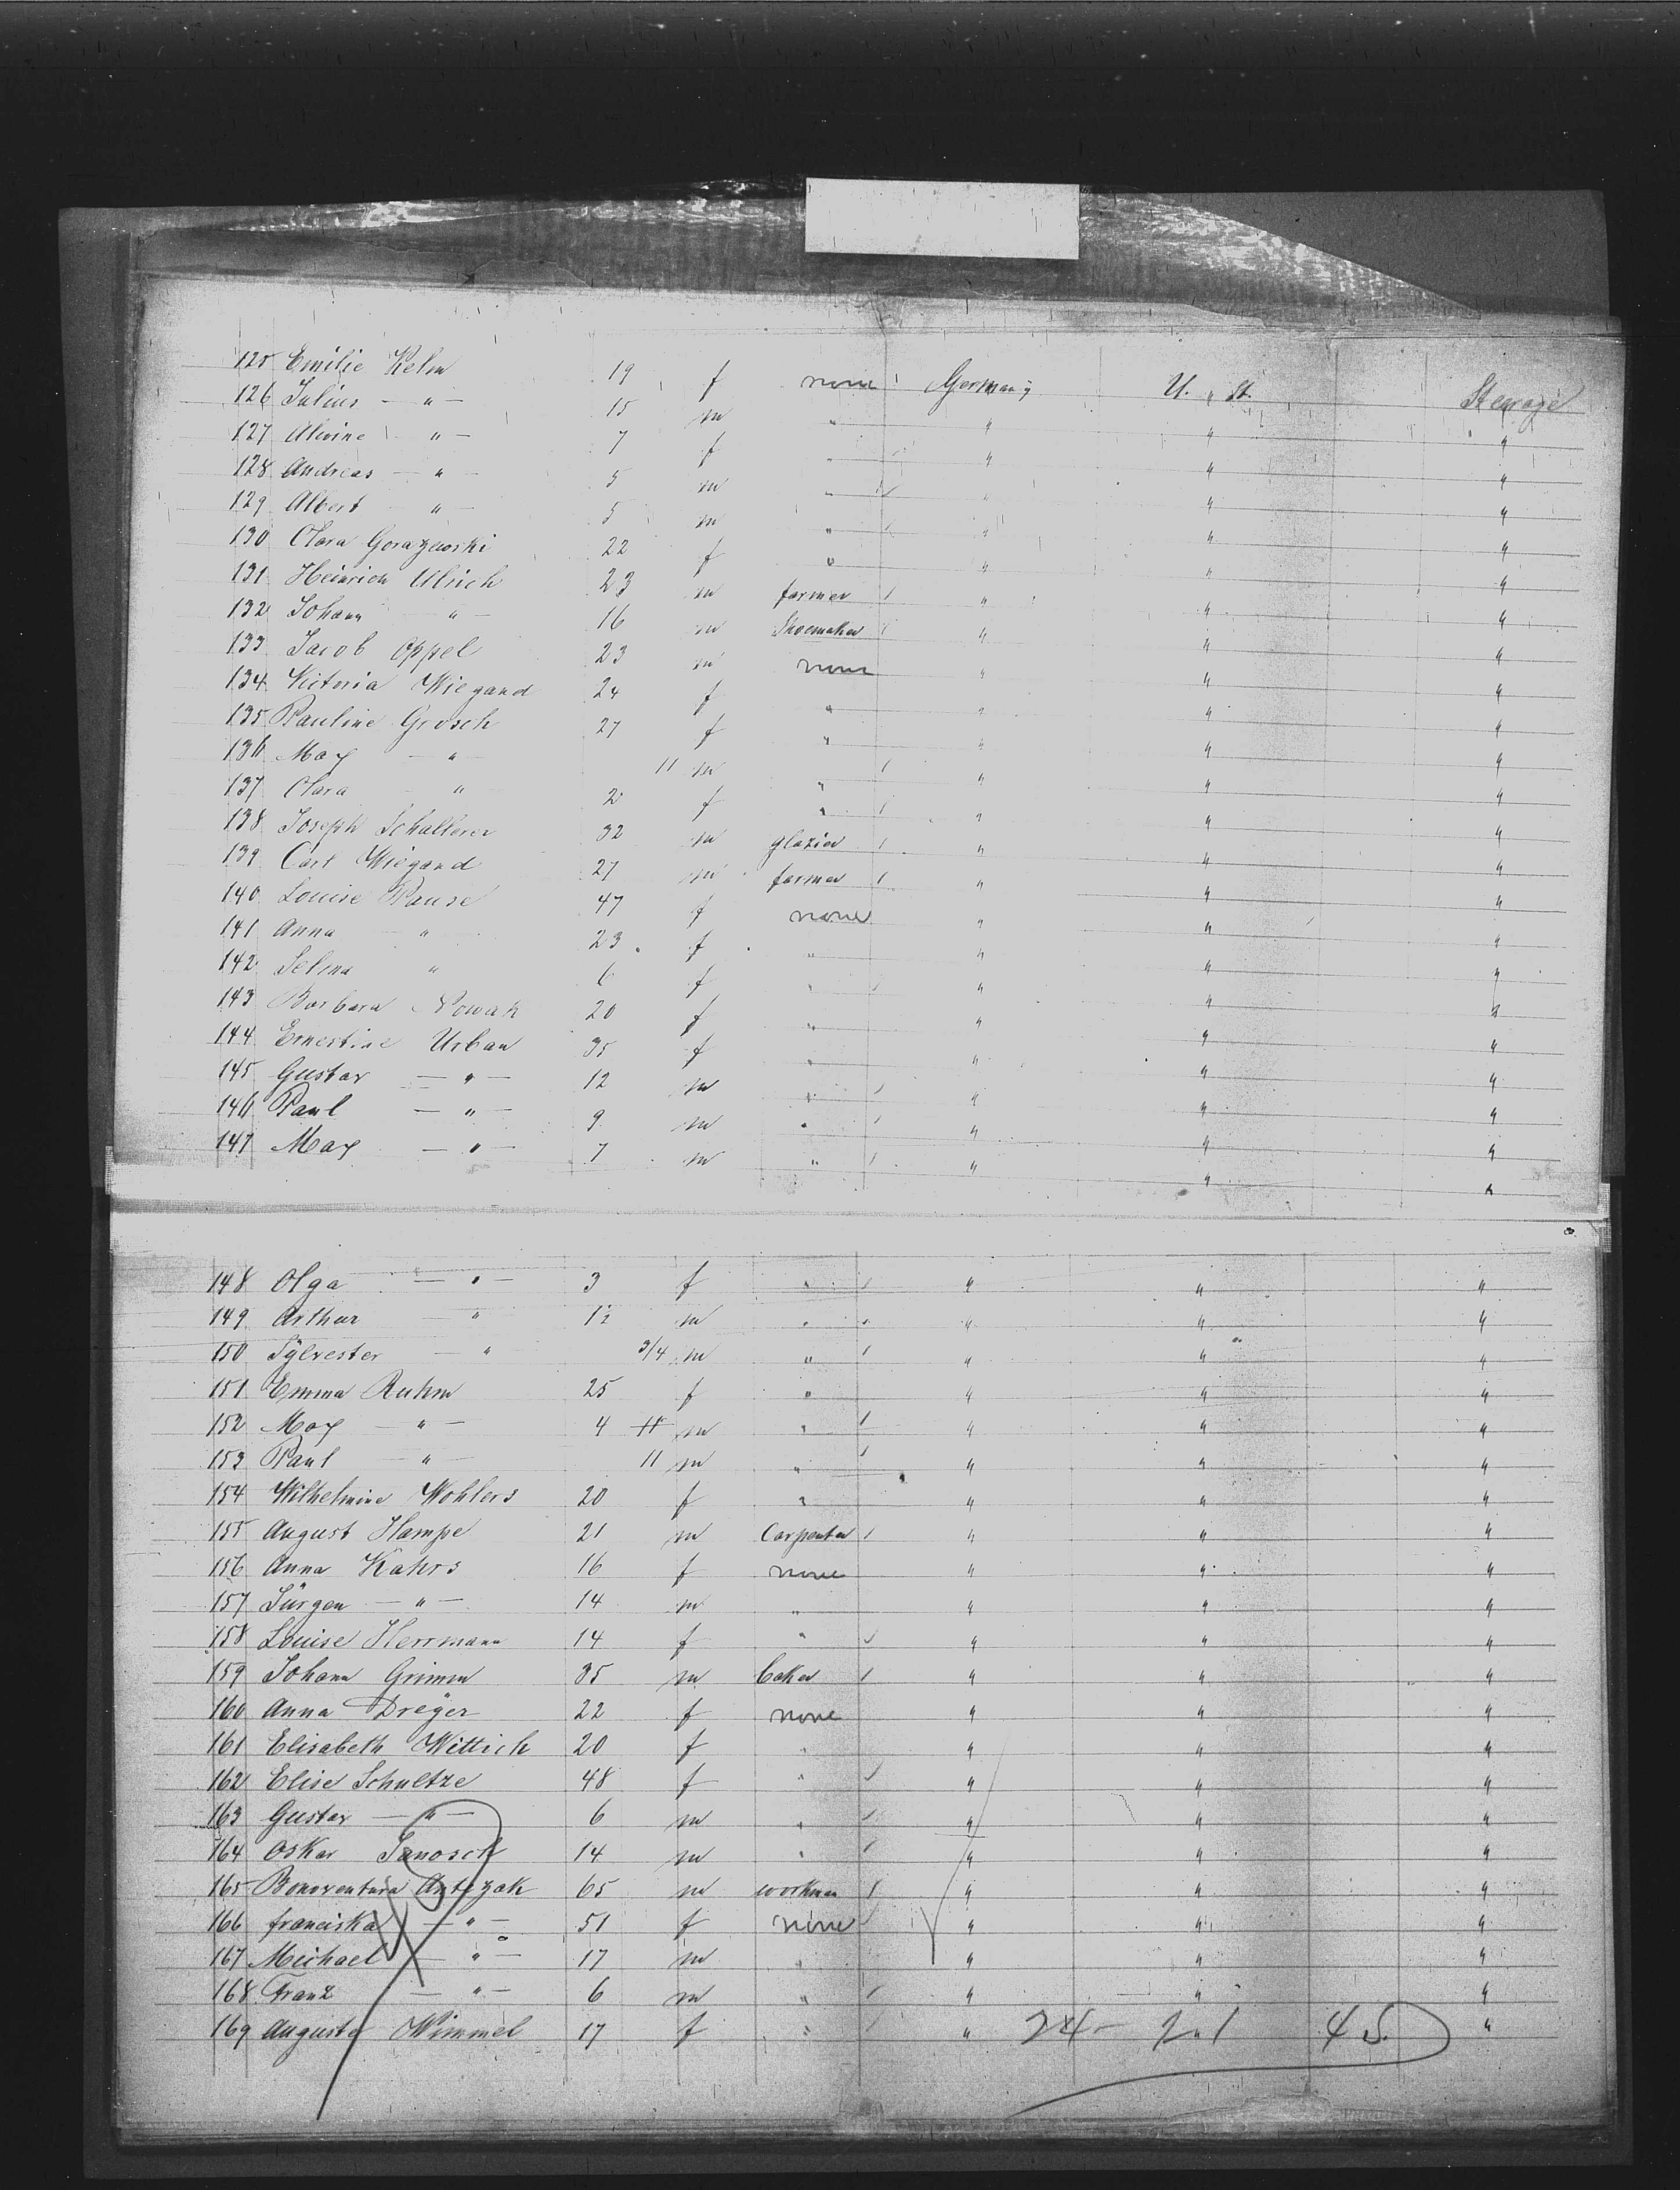 125 Emilie Kelm 19 f none Germany U. St. Steerage
126 Julius — " — 15 m " " " "
127 Alwine — " — 7 f " " " "
128 Andreas — " — 5 m " " " "
129 Albert — " — 5 m " " " "
130 Clara Gorazewski 22 f " " " "
131 Heinrich Ulrich 23 m farmer " " "
132 Johann — " — 16 m Shoemaker " " "
133 Jacob Oppel 23 m none " " "
134 Victoria Wiegand 24 f " " " "
135 Pauline Grosch 27 f " " " "
136 Max — " — 11 m " " " "
137 Clara " 2 f " " " "
138 Joseph Schallerer 32 m glazier " " "
139 Carl Wiegand 27 m farmer " " "
140 Louise Krause 47 f none " " "
141 Anna — " 23 f " " " "
142 Selma " 6 f " " " "
143 Barbara Nowak 20 f " " " "
144 Ernestine Urban 35 f " " " "
145 Gustav — " — 12 m " " " "
146 Paul — " — 9 m " " " "
147 Max — " — 7 m " " " "
148 Olga — " — 3 f " " " "
149 Arthur — " 1½ m " " " "
150 Sylvester — " 3/4 m " " " "
151 Emma Ruhm 25 f " " " "
152 Max — " — 4 11 m " " " "
153 Paul — " — 11 m " " " "
154 Wilhelmine Wohlers 20 f " " " "
155 August Hampe 21 m Carpenter " " "
156 Anna Kahrs 16 f none " " "
157 Jürgen — " — 14 m " " " "
158 Louise Herrmann 14 f " " " "
159 Johann Grimm 35 m baker " " "
160 Anna Dreÿer 22 f none " " "
161 Elisabeth Wittich 20 f " " " "
162 Elise Schultze 48 f " " " "
163 Gustav — " — 6 m " " " "
164 Oskar Janosch 14 m " " " "
165 Bonaventura Antczak 65 m workman " " "
166 franciska — " — 51 f none " " "
167 Michael — " — 17 m " " " "
168 Franz — " — 6 m " " " "
169 Auguste Wimmel 17 f " " 24 - 21 45 "